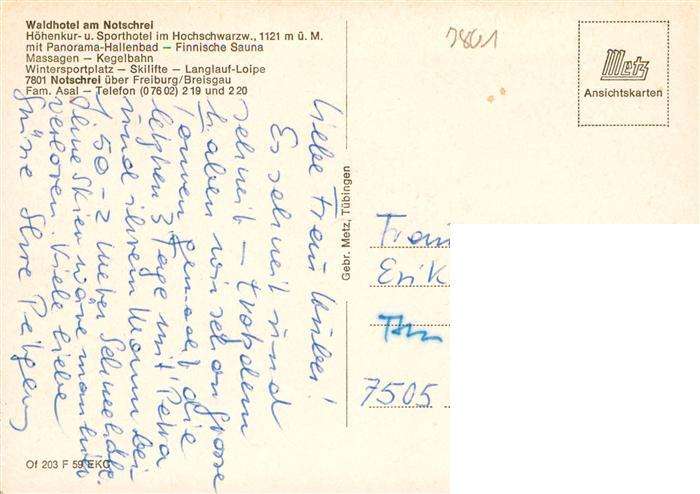 Waldhotel am Notschrei
Höhenkur- u. Sporthotel im Hochschwarzw., 1121 m ü. M.
mit Panorama-Hallenbad – Finnische Sauna
Massagen – Kegelbahn
Wintersportplatz – Skilifte – Langlauf-Loipe
7801 Notschrei über Freiburg/Breisgau
Fam. Asal – Telefon (0 76 02) 2 19 und 2 20
7801
Metz
Ansichtskarten
Liebe Frau
Es schneit und
schneit – trotzdem
haben wir schon grosse
Touren gemacht die
letzten 3 Tage mit Petra
und ihrem Mann bei
1,50 – 2 Meter Schneehöhe.
Ohne Skier wäre man hier
verloren. Viele liebe
Grüsse Ihre
Gebr. Metz, Tübingen
Erik
7505
Of 203 F 59 EKC